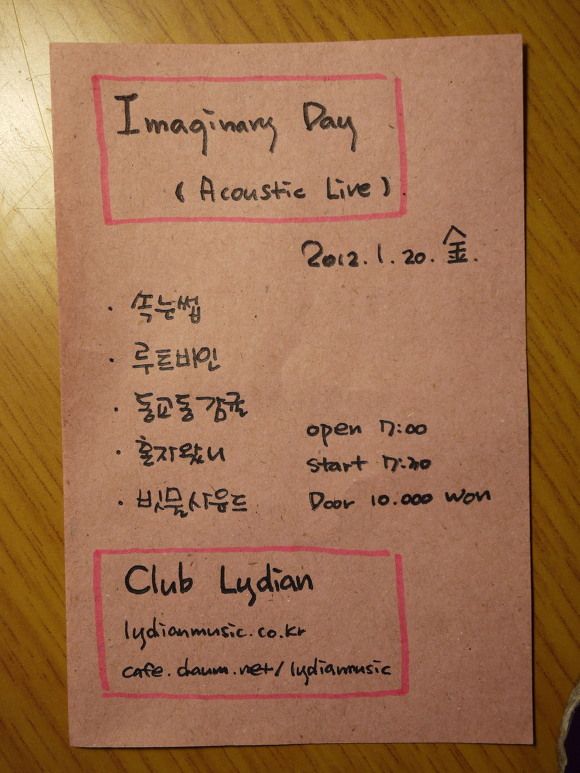 Imaginary Day
(Acoustic Live)
2012.1.20.金.
· 속눈썹
· 루트바인
· 동교동 감귤
· 혼자왔니
· 빗물사운드
open 7:00
start 7:30
Door 10.000 won
Club Lydian
lydianmusic.co.kr
cafe.daum.net/lydianmusic